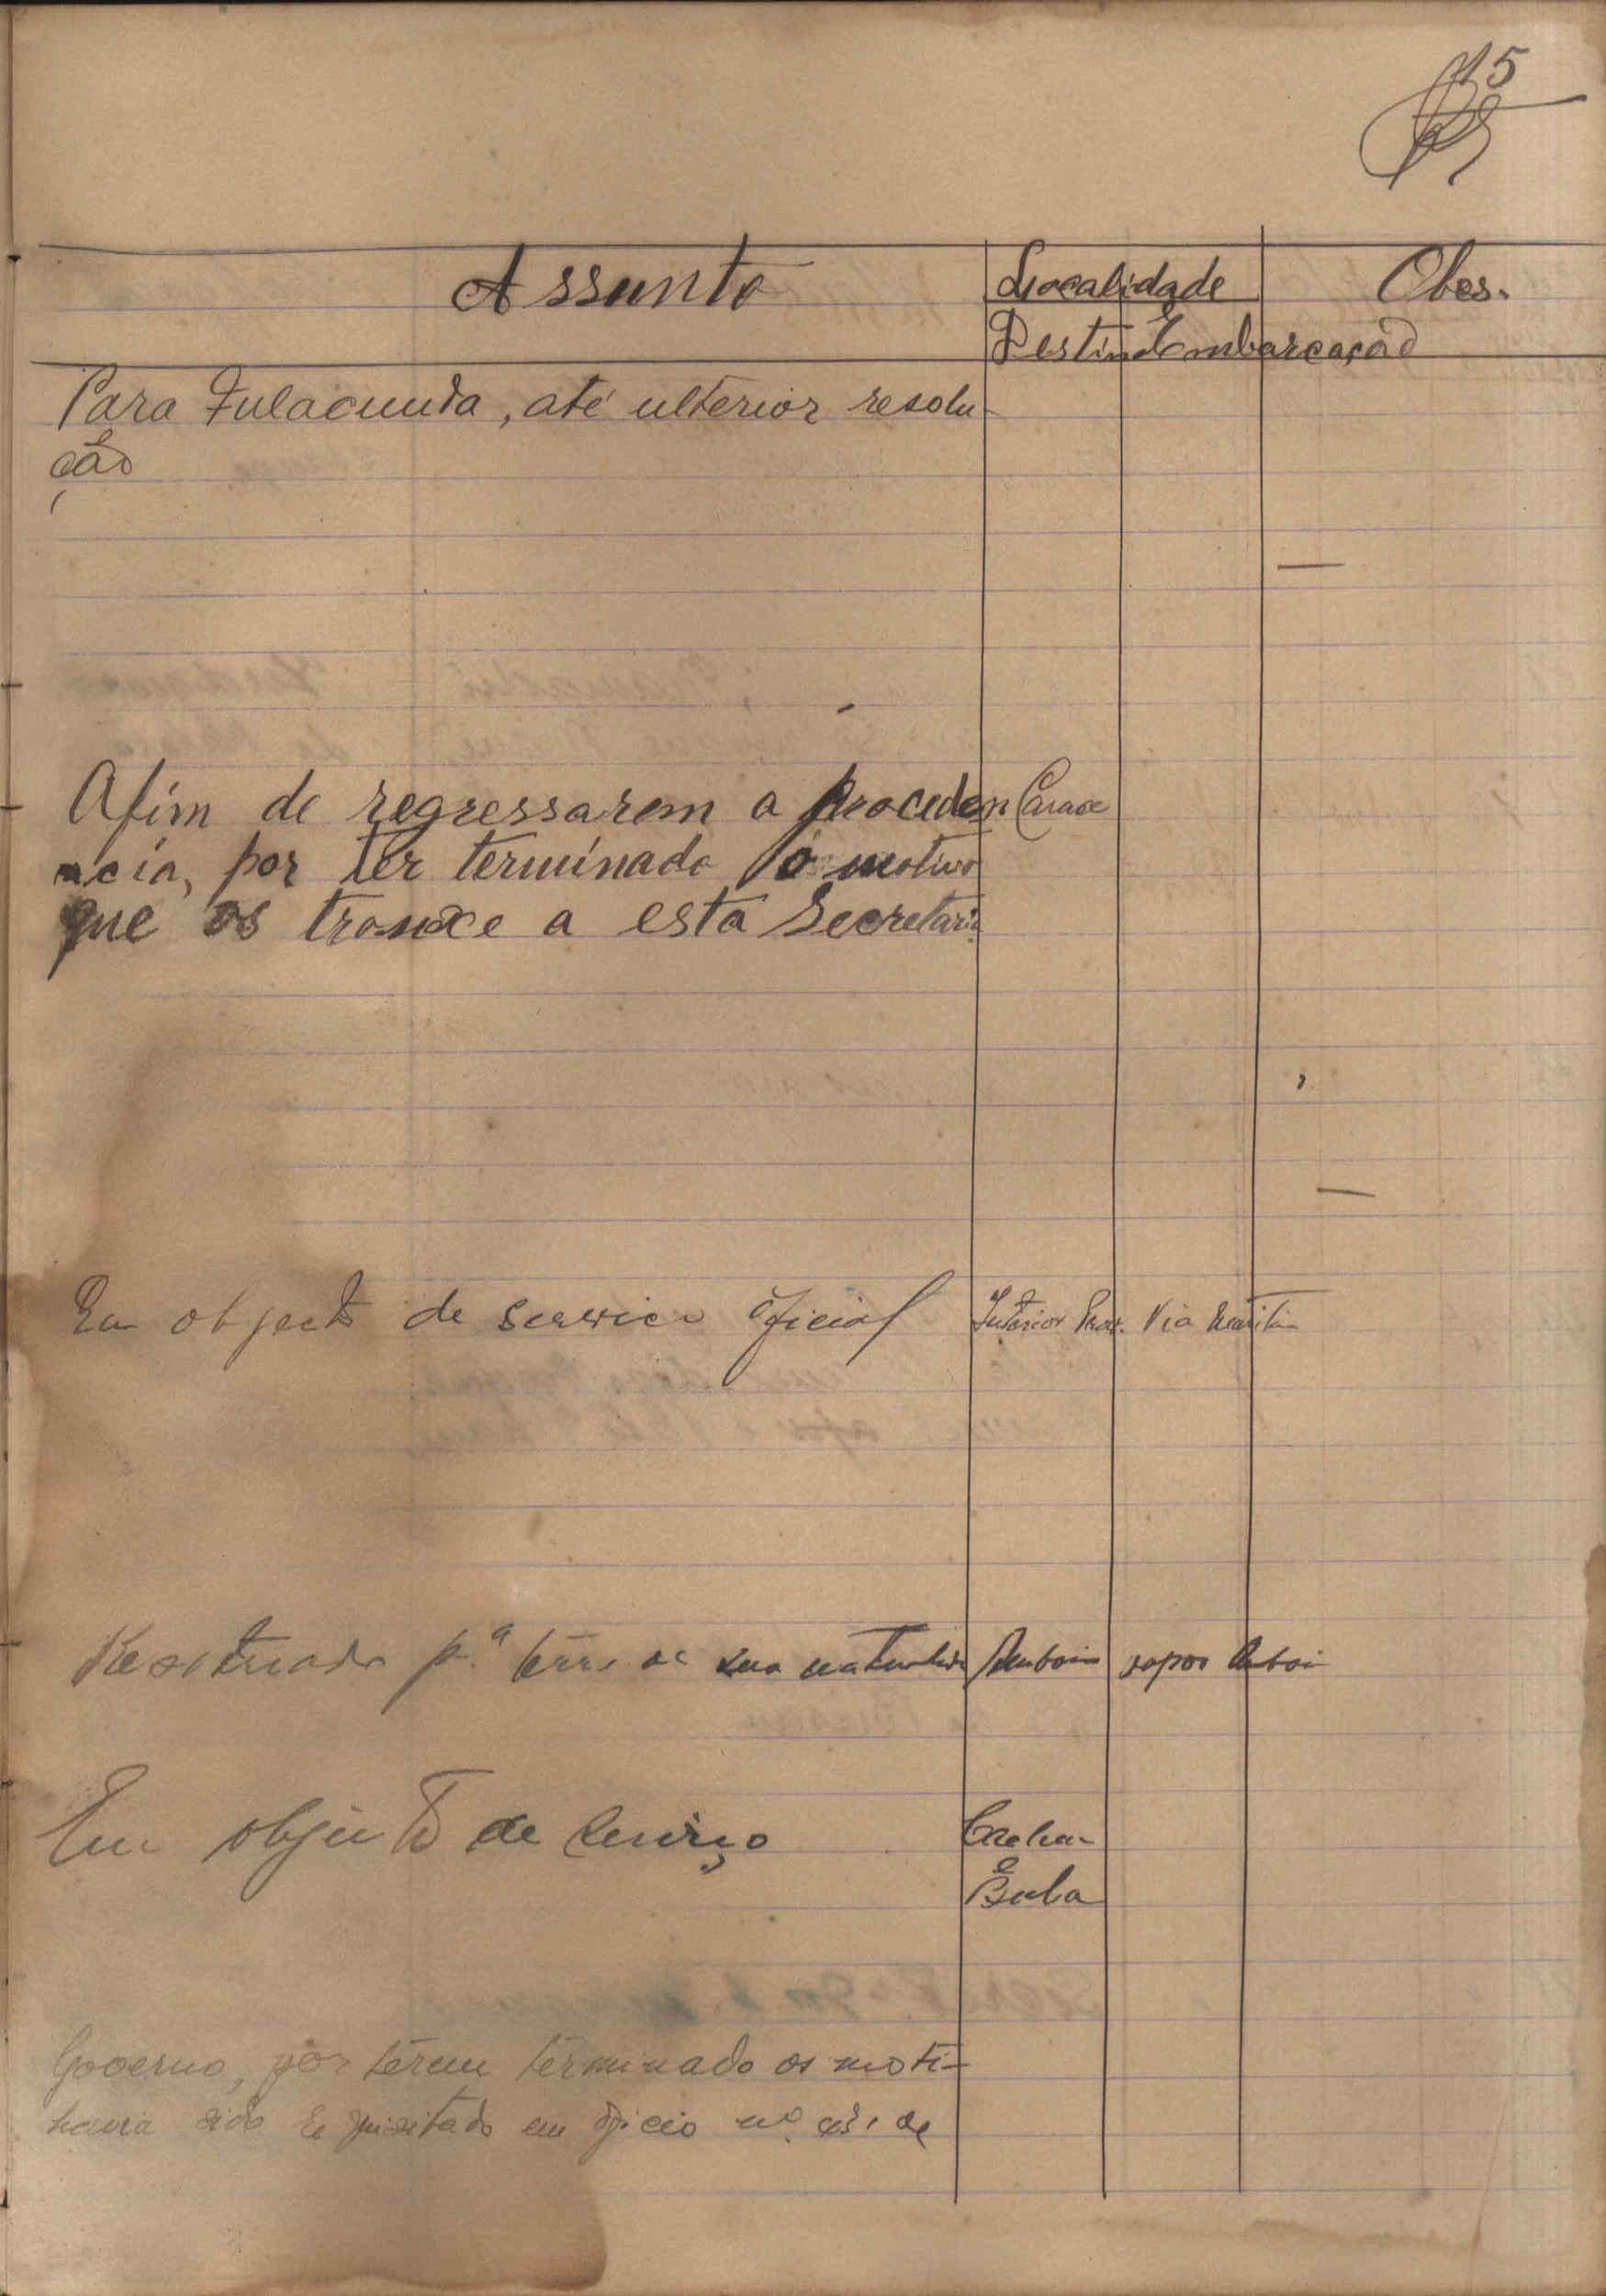 15
Assunto Localidade Obes.
Destino Embarcação
Para Fulacunda, até ulterior resolu-
ção
Afim de regressarem a proceden Canac
ncia, por ter terminado o motivo
que os trouxe a esta Secretaria
Em objecto de serviço oficial Interior Prov. Via maritim
p.ª terra de sua naturalid vapor
Em objecto de serviço
e
Buba
Governo, por terem terminado os moti-
havia sido requisitado em oficio nº de